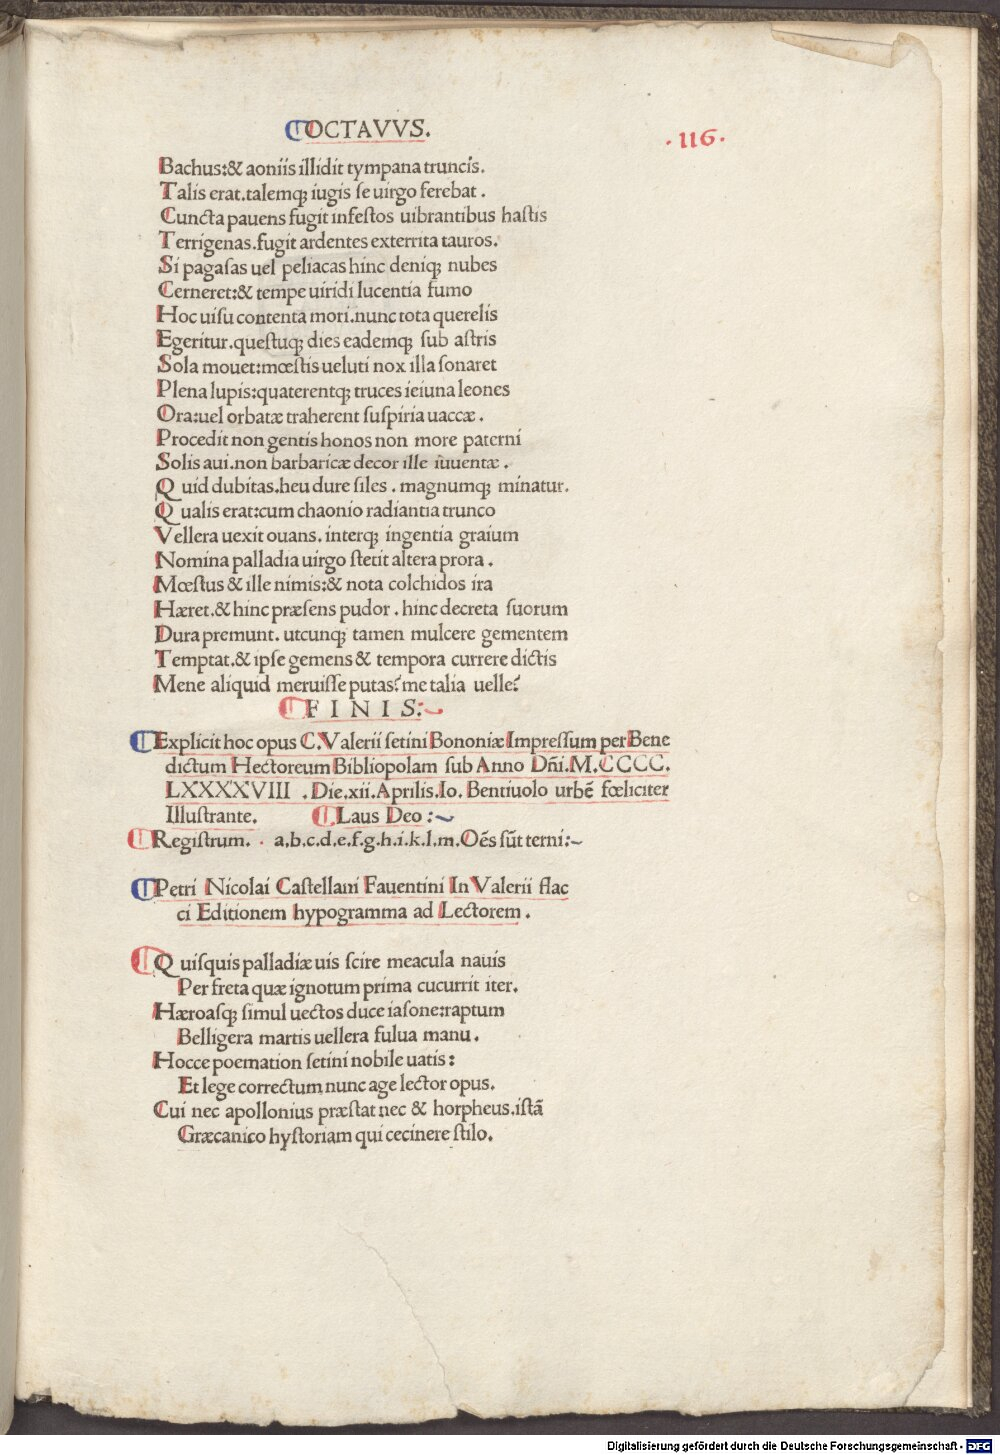 OCTAVVS.
.116.
Bachus:& aoniis illidit tympana truncis.
Talis erat.talemqꝫ iugis se uirgo ferebat .
Cuncta pauens fugit infestos uibrantibus hastis
Terrigenas.fugit ardentes exterrita tauros.
Si pagasas uel peliacas hinc deniqꝫ nubes
Cerneret:& tempe uiridi lucentia fumo
Hoc uisu contenta mori.nunc tota querelis
Egeritur.questuqꝫ dies eademqꝫ sub astris
Sola mouet:mœstis ueluti nox illa sonaret
Plena lupis:quaterentqꝫ truces ieiuna leones
Ora:uel orbatæ traherent suspiria uaccæ .
Procedit non gentis honos non more paterni
Solis aui.non barbaricæ decor ille iuuentæ .
Quid dubitas.heu dure siles . magnumqꝫ minatur.
Qualis erat:cum chaonio radiantia trunco
Vellera uexit ouans. interqꝫ ingentia graium
Nomina palladia uirgo stetit altera prora .
Mœstus & ille nimis:& nota colchidos ira
Hæret.& hinc præsens pudor . hinc decreta suorum
Dura premunt. utcunqꝫ tamen mulcere gementem
Temptat.& ipse gemens & tempora currere dictis
Mene aliquid meruisse putas? me talia uelle?
FINIS:
Explicit hoc opus C.Valerii setini Bononiæ Impressum per Bene
dictum Hectoreum Bibliopolam sub Anno Dñi.M.CCCC.
LXXXXVIII . Die.xii.Aprilis.Io. Bentiuolo urbē fœliciter
Illustrante. Laus Deo :~
Registrum. . a.b.c.d.e.f.g.h.i.k.l.m.Oēs sūt terni:~
Petri Nicolai Castellani Fauentini In Valerii flac
ci Editionem hypogramma ad Lectorem .
Quisquis palladiæ uis scire meacula nauis
Per freta quæ ignotum prima cucurrit iter.
Hæroasqꝫ simul uectos duce iasone:raptum
Belligera martis uellera fulua manu .
Hocce poemation setini nobile uatis:
Et lege correctum nunc age lector opus.
Cui nec apollonius præstat nec & horpheus.istā
Græcanico hystoriam qui cecinere stilo.
Digitalisierung gefördert durch die Deutsche Forschungsgemeinschaft - DFG